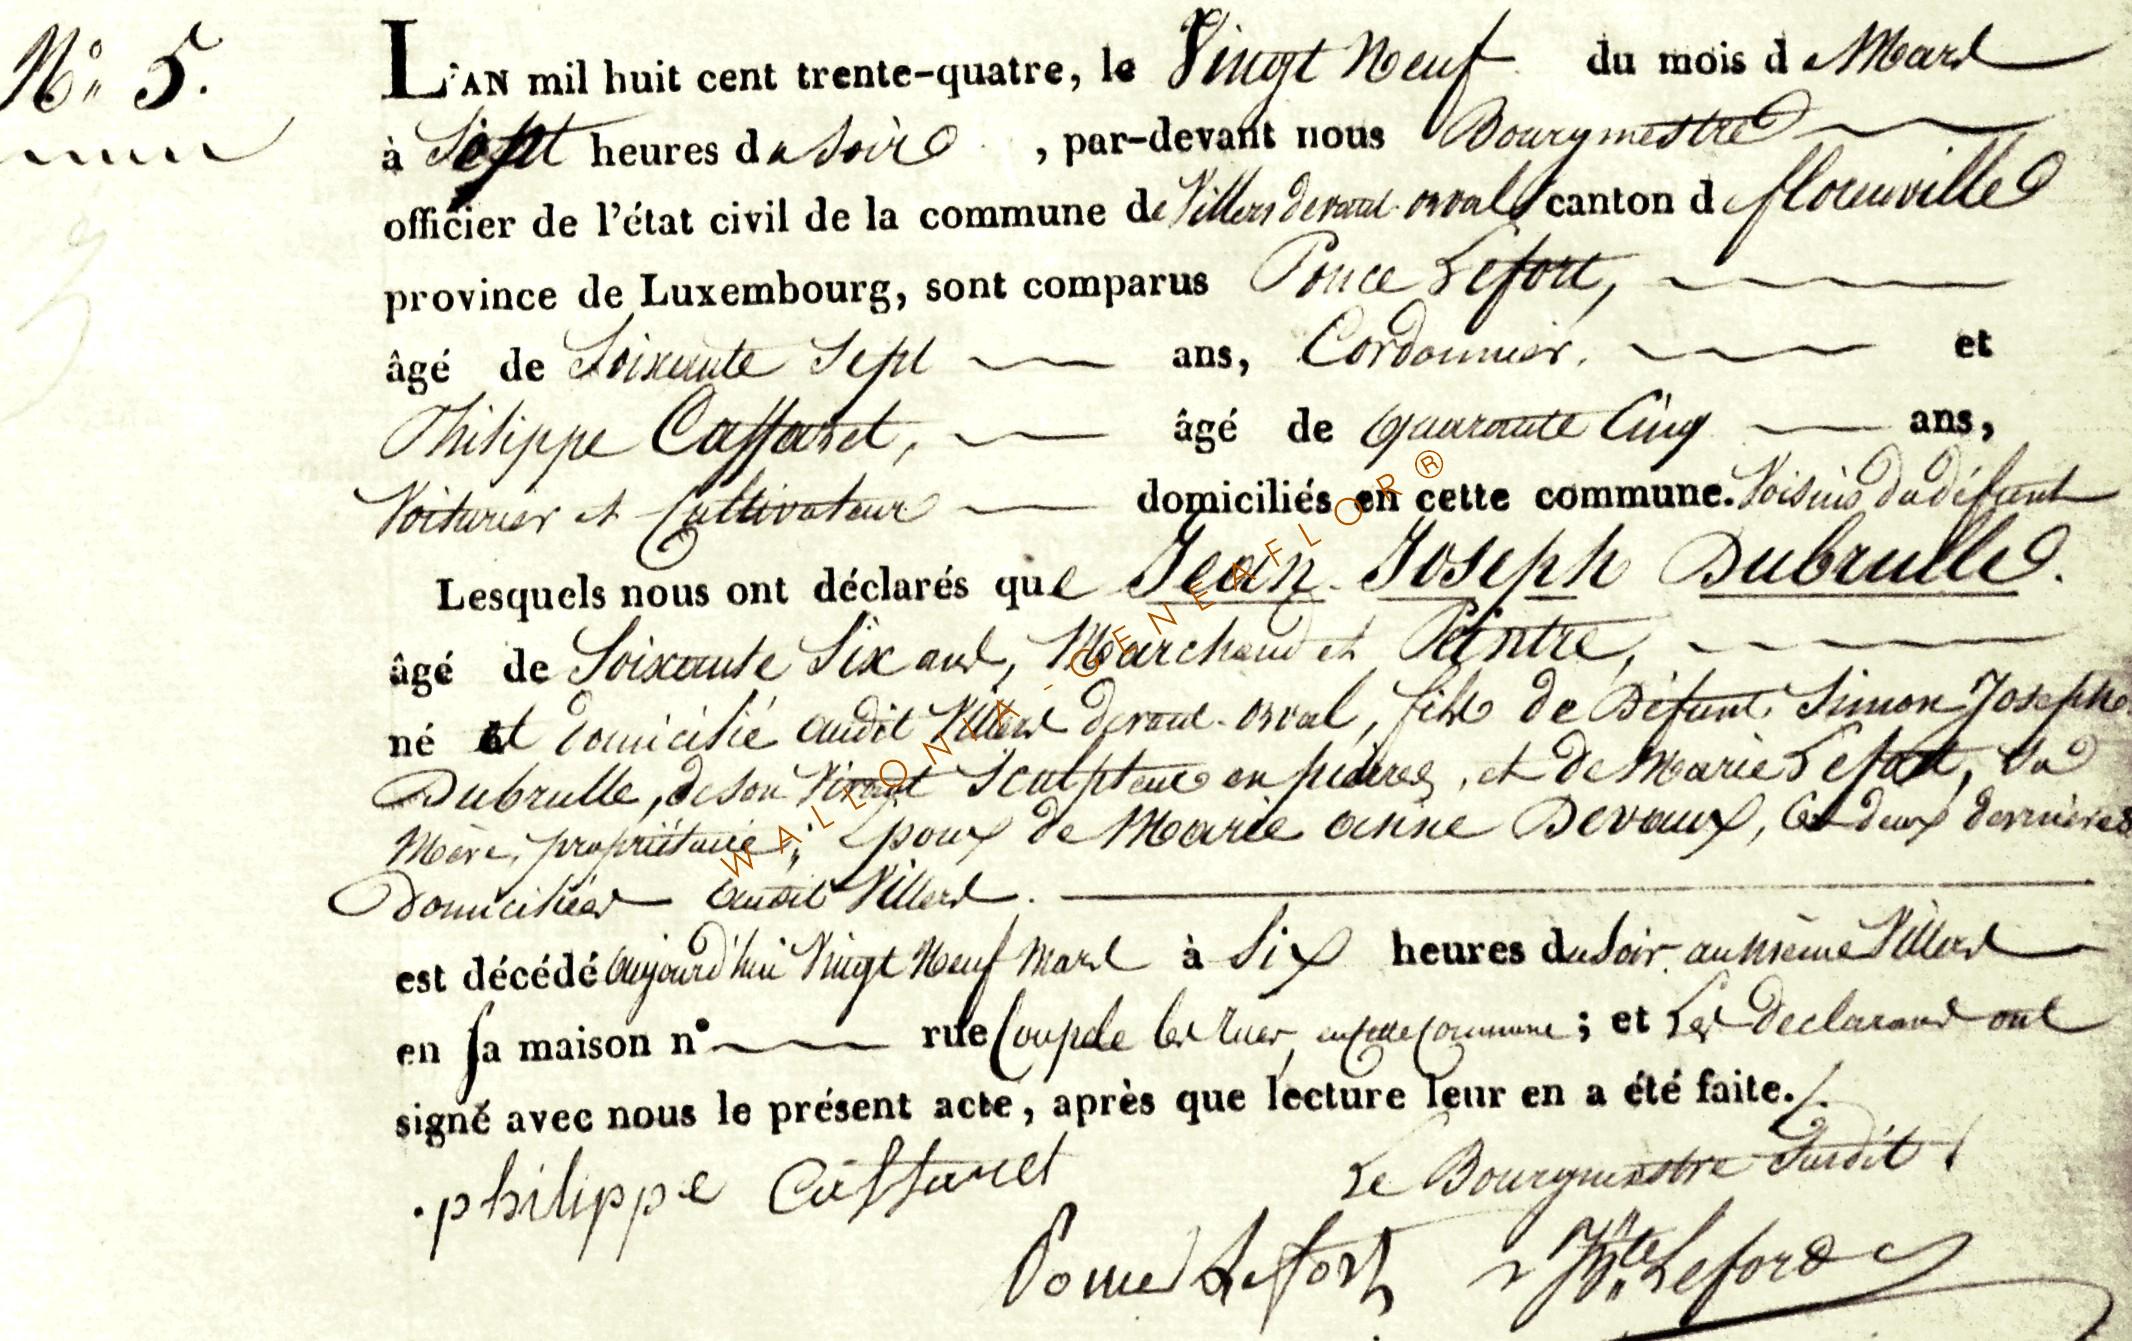 N° 5.
L'AN mil huit cent trente-quatre, le Vingt Neuf du mois de Mars
à Sept heures du Soir , par-devant nous Bourgmestre
officier de l'état civil de la commune de Villers devant-orval canton de florenville
province de Luxembourg, sont comparus Ponce Lefort,
âgé de Soixante Sept ans, Cordonnier. et
Philippe Caffaret, âgé de quarante Cinq ans,
Voiturier et Cultivateur domiciliés en cette commune. Voisins du défunt
Lesquels nous ont déclarés que Jean Joseph Dubrulle.
âgé de Soixante Six ans, Marchand et Peintre,
né et domicilié audit Villers devant-orval, fils de Défunt Simon Joseph
Dubrulle, de son Vivant Sculpteur en pierres, et de Marie Lefort, Sa
Mère, propriétaire; Epoux de Marie anne Devaux, les deux dernières
Domiciliées audit Villers.
est décédé aujourd'hui Vingt Neuf Mars à Six heures du Soir au même Villers
en sa maison n° rue Coupele les rues, en cette Commune ; et Les déclarans ont
signé avec nous le présent acte, après que lecture leur en a été faite./.
philippe Caffaret Le Bourgmestre Susdit
Ponce Lefort Lefort
WALLONIA-GENEAFLOR®